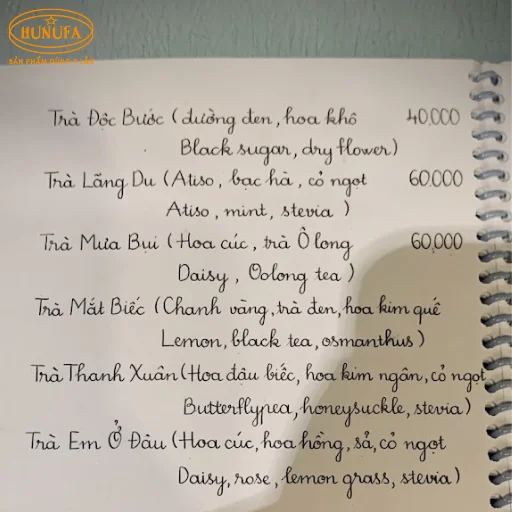 HUNUFA
Trà Độc Bước (đường đen, hoa khô 40.000
Black sugar, dry flower)
Trà Lãng Du (Atiso, bạc hà, cỏ ngọt 60.000
Atiso, mint, stevia )
Trà Mưa Bụi (Hoa cúc, trà Ô long 60,000
Daisy, Oolong tea)
Trà Mắt Biếc (Chanh vàng, trà đen, hoa kim quế
Lemon, black tea, osmanthus)
Trà Thanh Xuân (Hoa đậu biếc, hoa kim ngân, cỏ ngọt
Butterflypea, honeysuckle, stevia)
Trà Em Ở Đâu (Hoa cúc, hoa hồng, sả, cỏ ngọt
Daisy, rose, lemon grass, stevia)